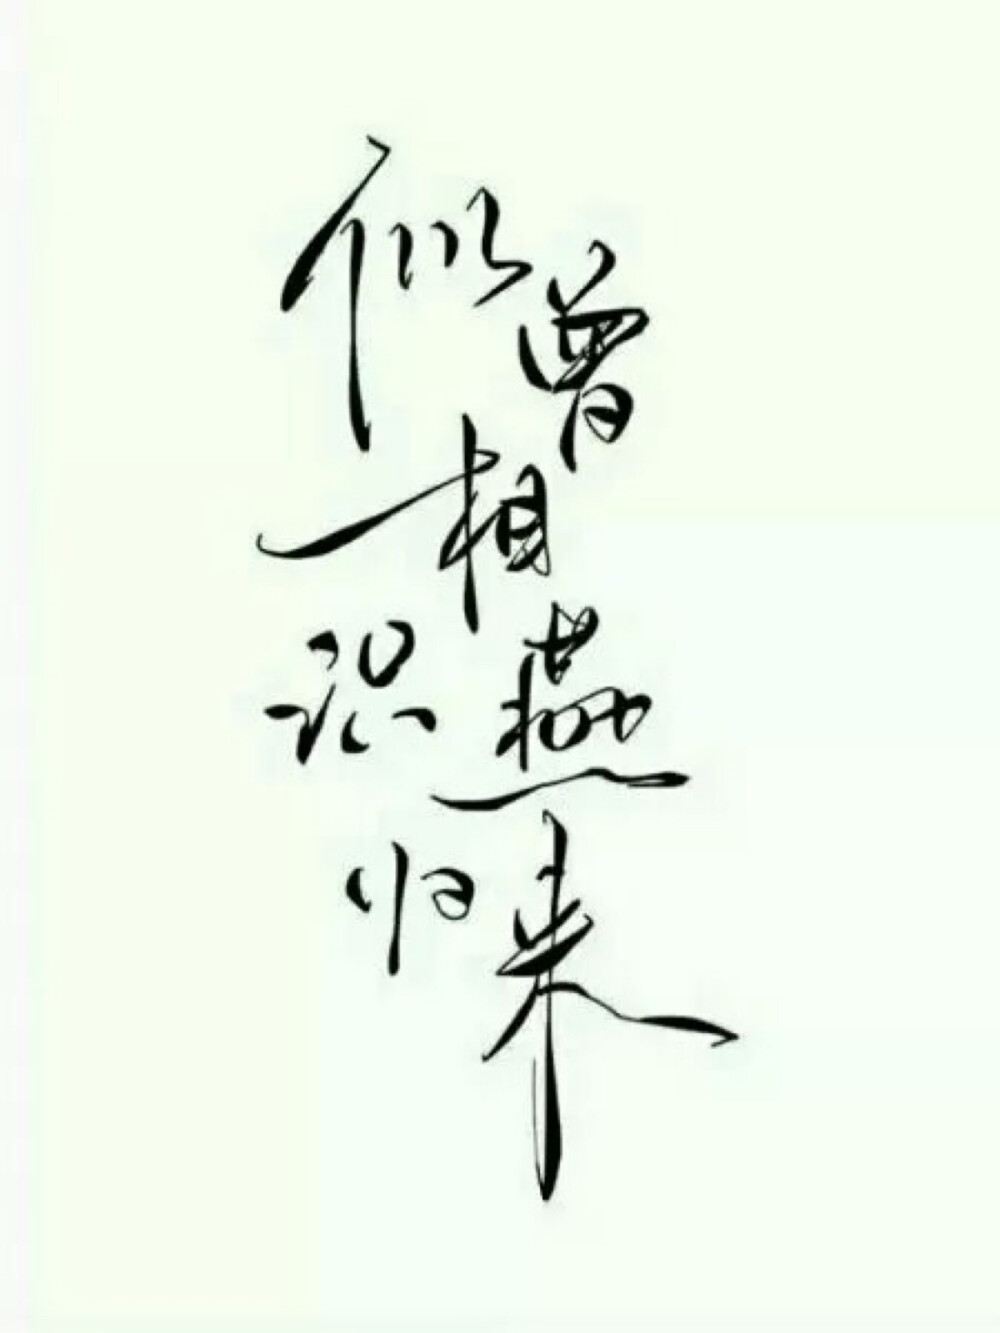 似曾
相
识燕
归来